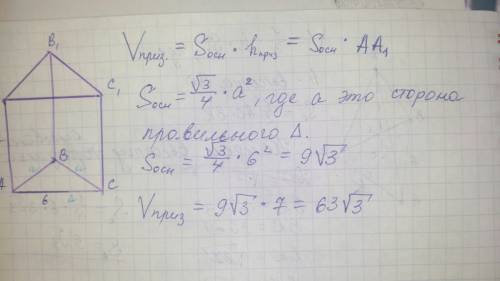 B₁
C₁
B
A
C
6
Vприз. = Sосн · hприз = Sосн · AA₁
Sосн = √3/4 · a², где а это сторона
правильного Δ.
Sосн = √3/4 · 6² = 9√3
Vприз = 9√3 · 7 = 63√3